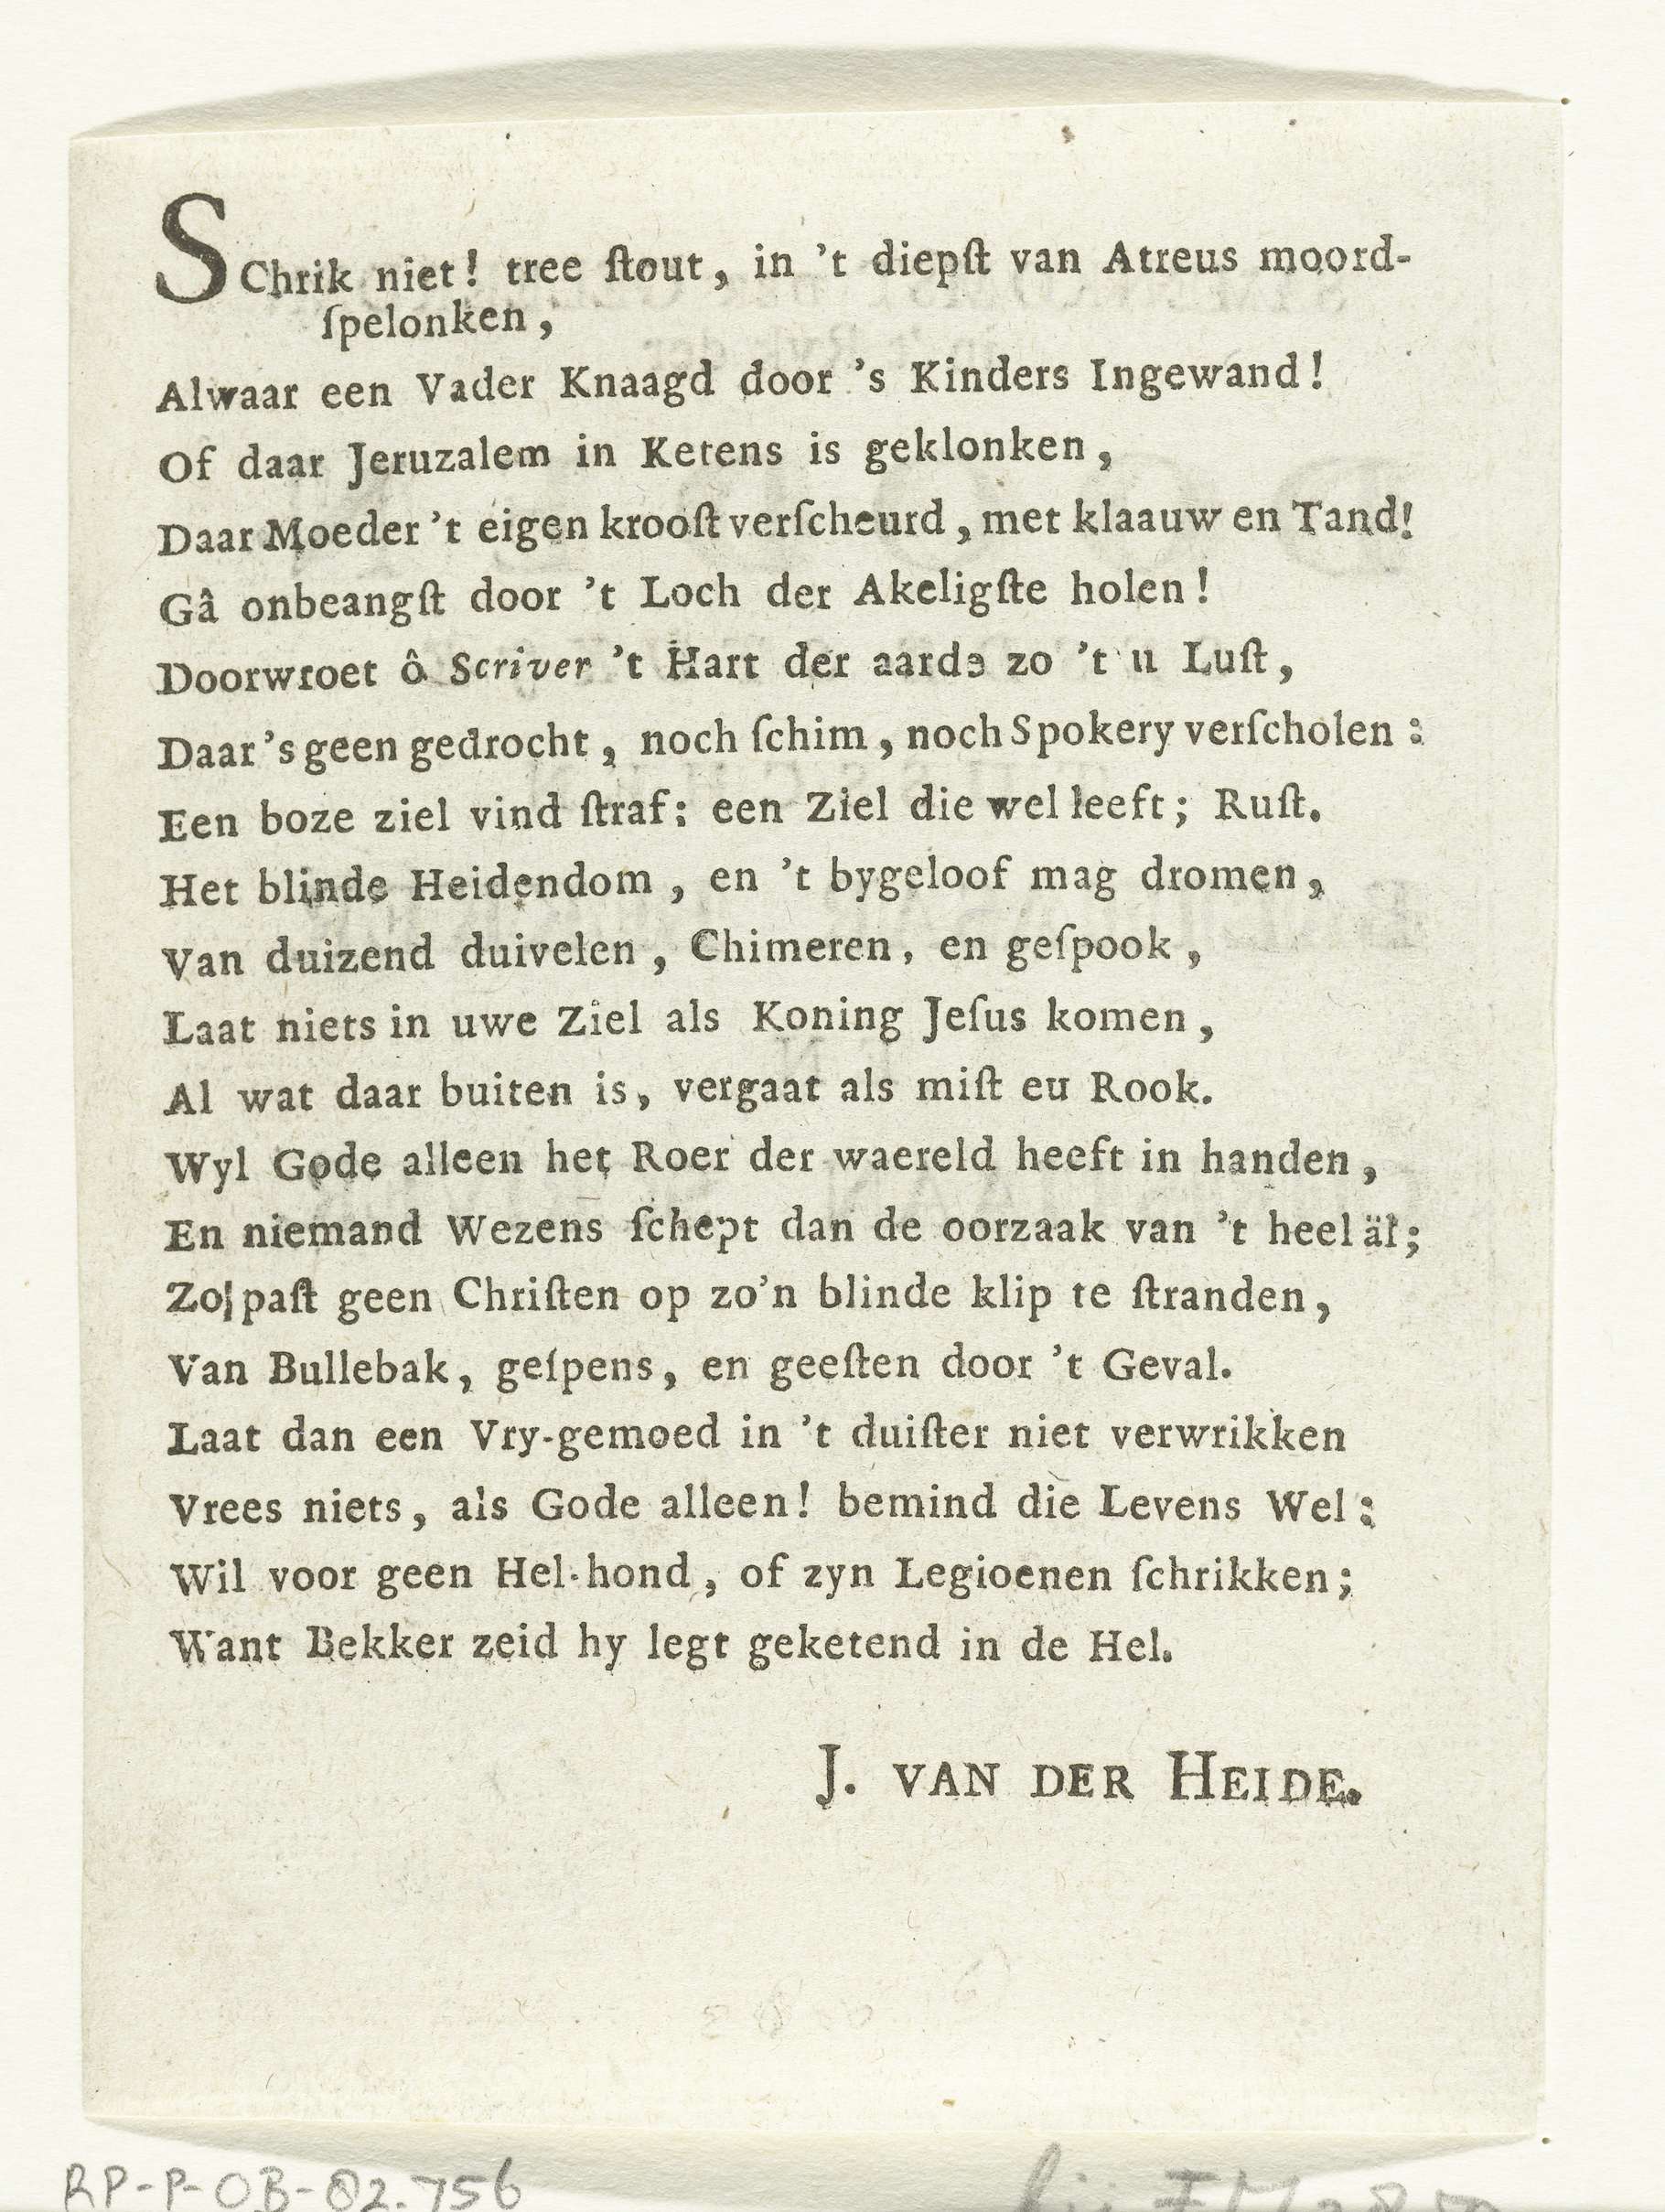 SChrik niet! tree ſtout, in 't diepſt van Atreus moord-
ſpelonken,
Alwaar een Vader Knaagd door 's Kinders Ingewand!
Of daar Jeruzalem in Ketens is geklonken,
Daar Moeder 't eigen krooſt verſcheurd, met klaauw en Tand!
Gâ onbeangſt door 't Loch der Akeligſte holen!
Doorwroet ô Scriver 't Hart der aarde zo 't u Luſt,
Daar 's geen gedrocht, noch ſchim, noch Spokery verſcholen:
Een boze ziel vind ſtraf: een Ziel die wel leeft; Ruſt.
Het blinde Heidendom, en 't bygeloof mag dromen,
Van duizend duivelen, Chimeren, en geſpook,
Laat niets in uwe Ziel als Koning Jeſus komen,
Al wat daar buiten is, vergaat als miſt eu Rook.
Wyl Gode alleen het Roer der waereld heeft in handen,
En niemand Wezens ſchept dan de oorzaak van 't heel äl;
Zo paſt geen Chriſten op zo'n blinde klip te ſtranden,
Van Bullebak, geſpens, en geeſten door 't Geval.
Laat dan een Vry-gemoed in 't duiſter niet verwrikken
Vrees niets, als Gode alleen! bemind die Levens Wel:
Wil voor geen Hel-hond, of zyn Legioenen ſchrikken;
Want Bekker zeid hy legt geketend in de Hel.
J. VAN DER HEIDE.
RP-P-OB-82.756